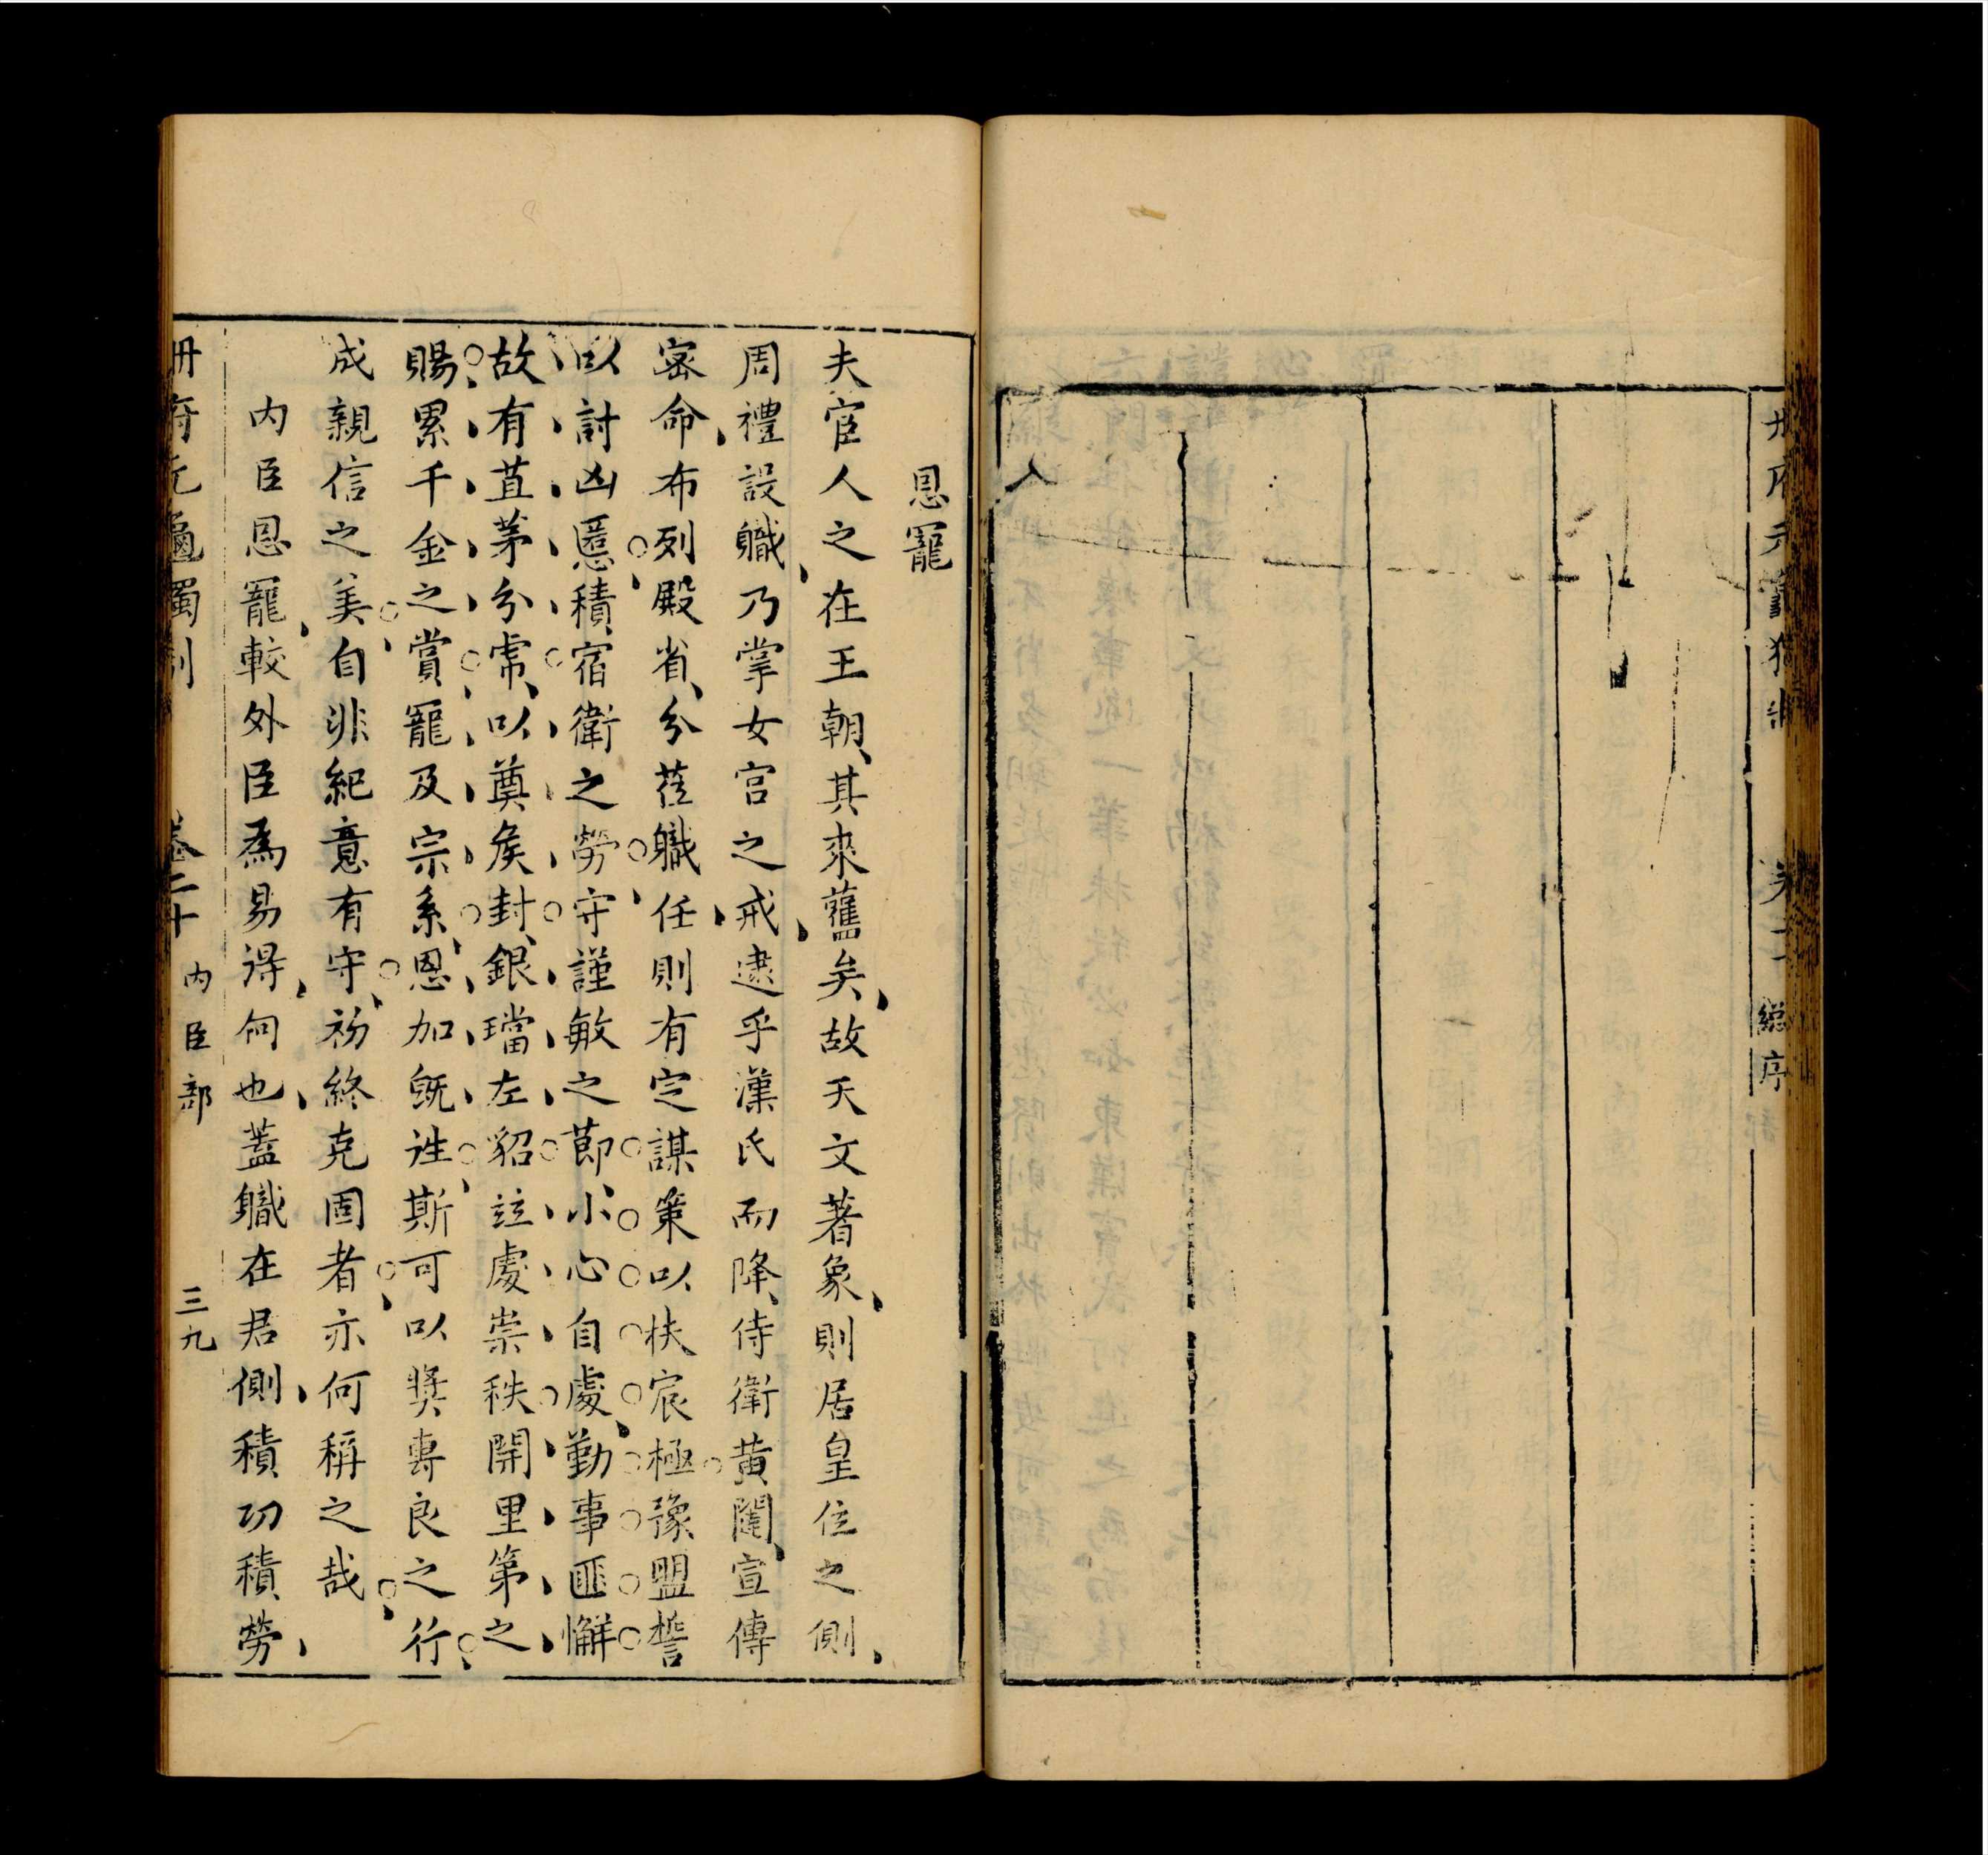 冊府元龜獨制
卷二
總序
恩寵
夫宦人之在王朝、其來舊矣、故天文著象、則居皇位之側、
周禮設職、乃掌女宮之戒、逮乎漢氏而降、侍衛黃闥、宣傳
密命、布列殿省、分莅職任、則有定謀策以扶宸極、豫盟誓
以討凶慝、積宿衛之勞、守謹敏之節、小心自處、勤事匪懈、
故有苴茅分虎、以奠矦封、銀璫左貂、竝處崇秩、開里第之
賜、累千金之賞、寵及宗系、恩加旣詵、斯可以奬專良之行、
成親信之美、自非紀意有守、初終克固者、亦何稱之哉
內臣恩寵、較外臣爲易得、何也、蓋職在君側、積功積勞、
冊府元龜獨制
卷二十
內臣部
三九